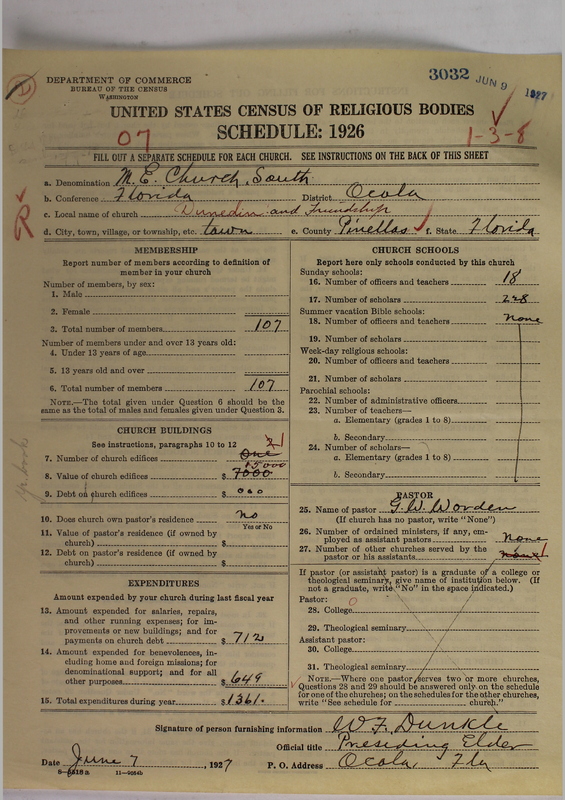 3032 JUN 9 1927
DEPARTMENT OF COMMERCE
BUREAU OF THE CENSUS
WASHINGTON
UNITED STATES CENSUS OF RELIGIOUS BODIES
SCHEDULE: 1926
07
1-3-8
FILL OUT A SEPARATE SCHEDULE FOR EACH CHURCH. SEE INSTRUCTIONS ON THE BACK OF THIS SHEET
a. Denomination M.E. Church, South
b. Conference Florida District Ocala
c. Local name of church Dunedin and Friendship
d. City, town, village, or township, etc. town e. County Pinellas f. State Florida
MEMBERSHIP
Report number of members according to definition of
member in your church
Number of members, by sex:
1. Male
2. Female
3. Total number of members 107
Number of members under and over 13 years old:
4. Under 13 years of age
5. 13 years old and over
6. Total number of members 107
NOTE.—The total given under Question 6 should be the
same as the total of males and females given under Question 3.
CHURCH BUILDINGS
See instructions, paragraphs 10 to 12
7. Number of church edifices One 2
8. Value of church edifices $ 7000 15000
9. Debt on church edifices $ 000
10. Does church own pastor's residence No
Yes or No
11. Value of pastor's residence (if owned by
church) $
12. Debt on pastor's residence (if owned by
church) $
EXPENDITURES
Amount expended by your church during last fiscal year
13. Amount expended for salaries, repairs,
and other running expenses; for im-
provements or new buildings; and for
payments on church debt $ 712
14. Amount expended for benevolences, in-
cluding home and foreign missions; for
denominational support; and for all
other purposes $ 649
15. Total expenditures during year $ 1361.
CHURCH SCHOOLS
Report here only schools conducted by this church
Sunday schools:
16. Number of officers and teachers 18
17. Number of scholars 228
Summer vacation Bible schools:
18. Number of officers and teachers None
19. Number of scholars
Week-day religious schools:
20. Number of officers and teachers
21. Number of scholars
Parochial schools:
22. Number of administrative officers
23. Number of teachers—
a. Elementary (grades 1 to 8)
b. Secondary
24. Number of scholars—
a. Elementary (grades 1 to 8)
b. Secondary
PASTOR
25. Name of pastor G.W. Worden
(If church has no pastor, write "None")
26. Number of ordained ministers, if any, em-
ployed as assistant pastors None
27. Number of other churches served by the
pastor or his assistants None 1
If pastor (or assistant pastor) is graduate of a college or
theological seminary, give name of institution below. (If
not a graduate, write "No" in the space indicated.)
Pastor:
28. College 0
29. Theological seminary
Assistant pastor:
30. College
31. Theological seminary
NOTE.—Where one pastor serves two or more churches,
Questions 28 and 29 should be answered only on the schedule
for one of the churches; on the schedules for the other churches,
write "See schedule for church."
Signature of person furnishing information W.F. Dunkle
Official title Presiding Elder
Date June 7, 1927 P. O. Address Ocala, Fla
11—9084b